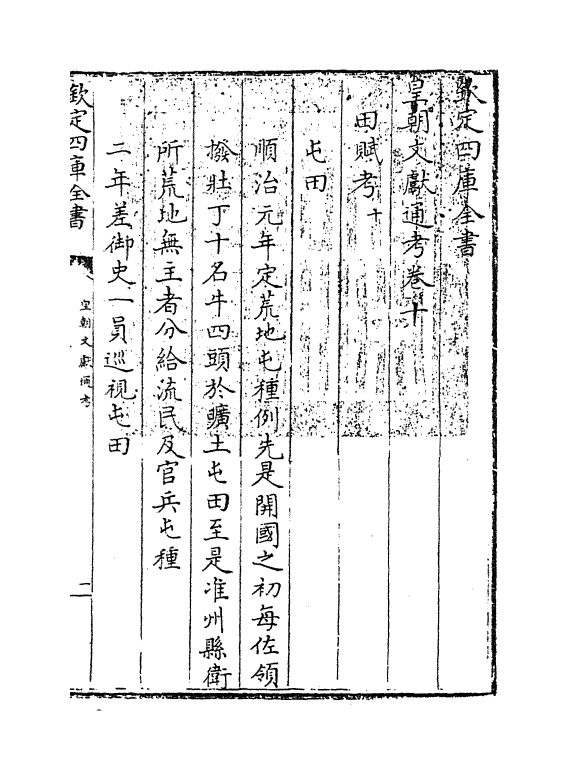 欽定四庫全書
皇朝文獻通考卷十
田賦考十
屯田
順治元年定荒地屯種例先是開國之初每佐領
撥壯丁十名牛四頭於曠土屯田至是准州縣衛
所荒地無主者分給流民及官兵屯種
二年差御史一員巡視屯田
欽定四庫全書
皇朝文獻通考